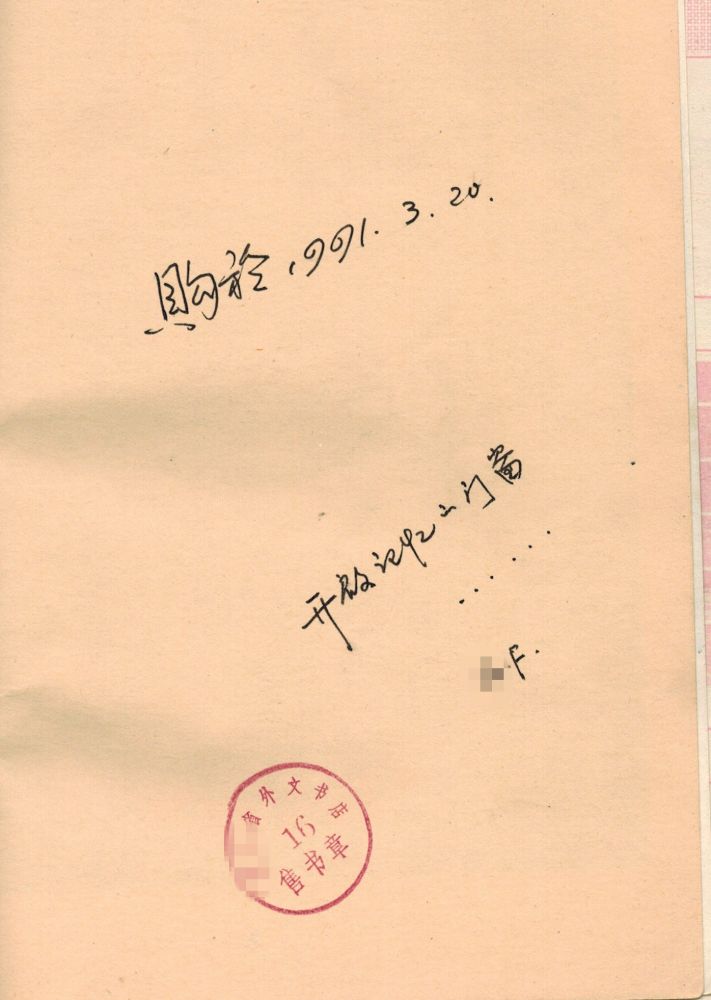 購於1991.3.20.
开啟记忆之门窗
······
F.
省外文书店
16
售书章